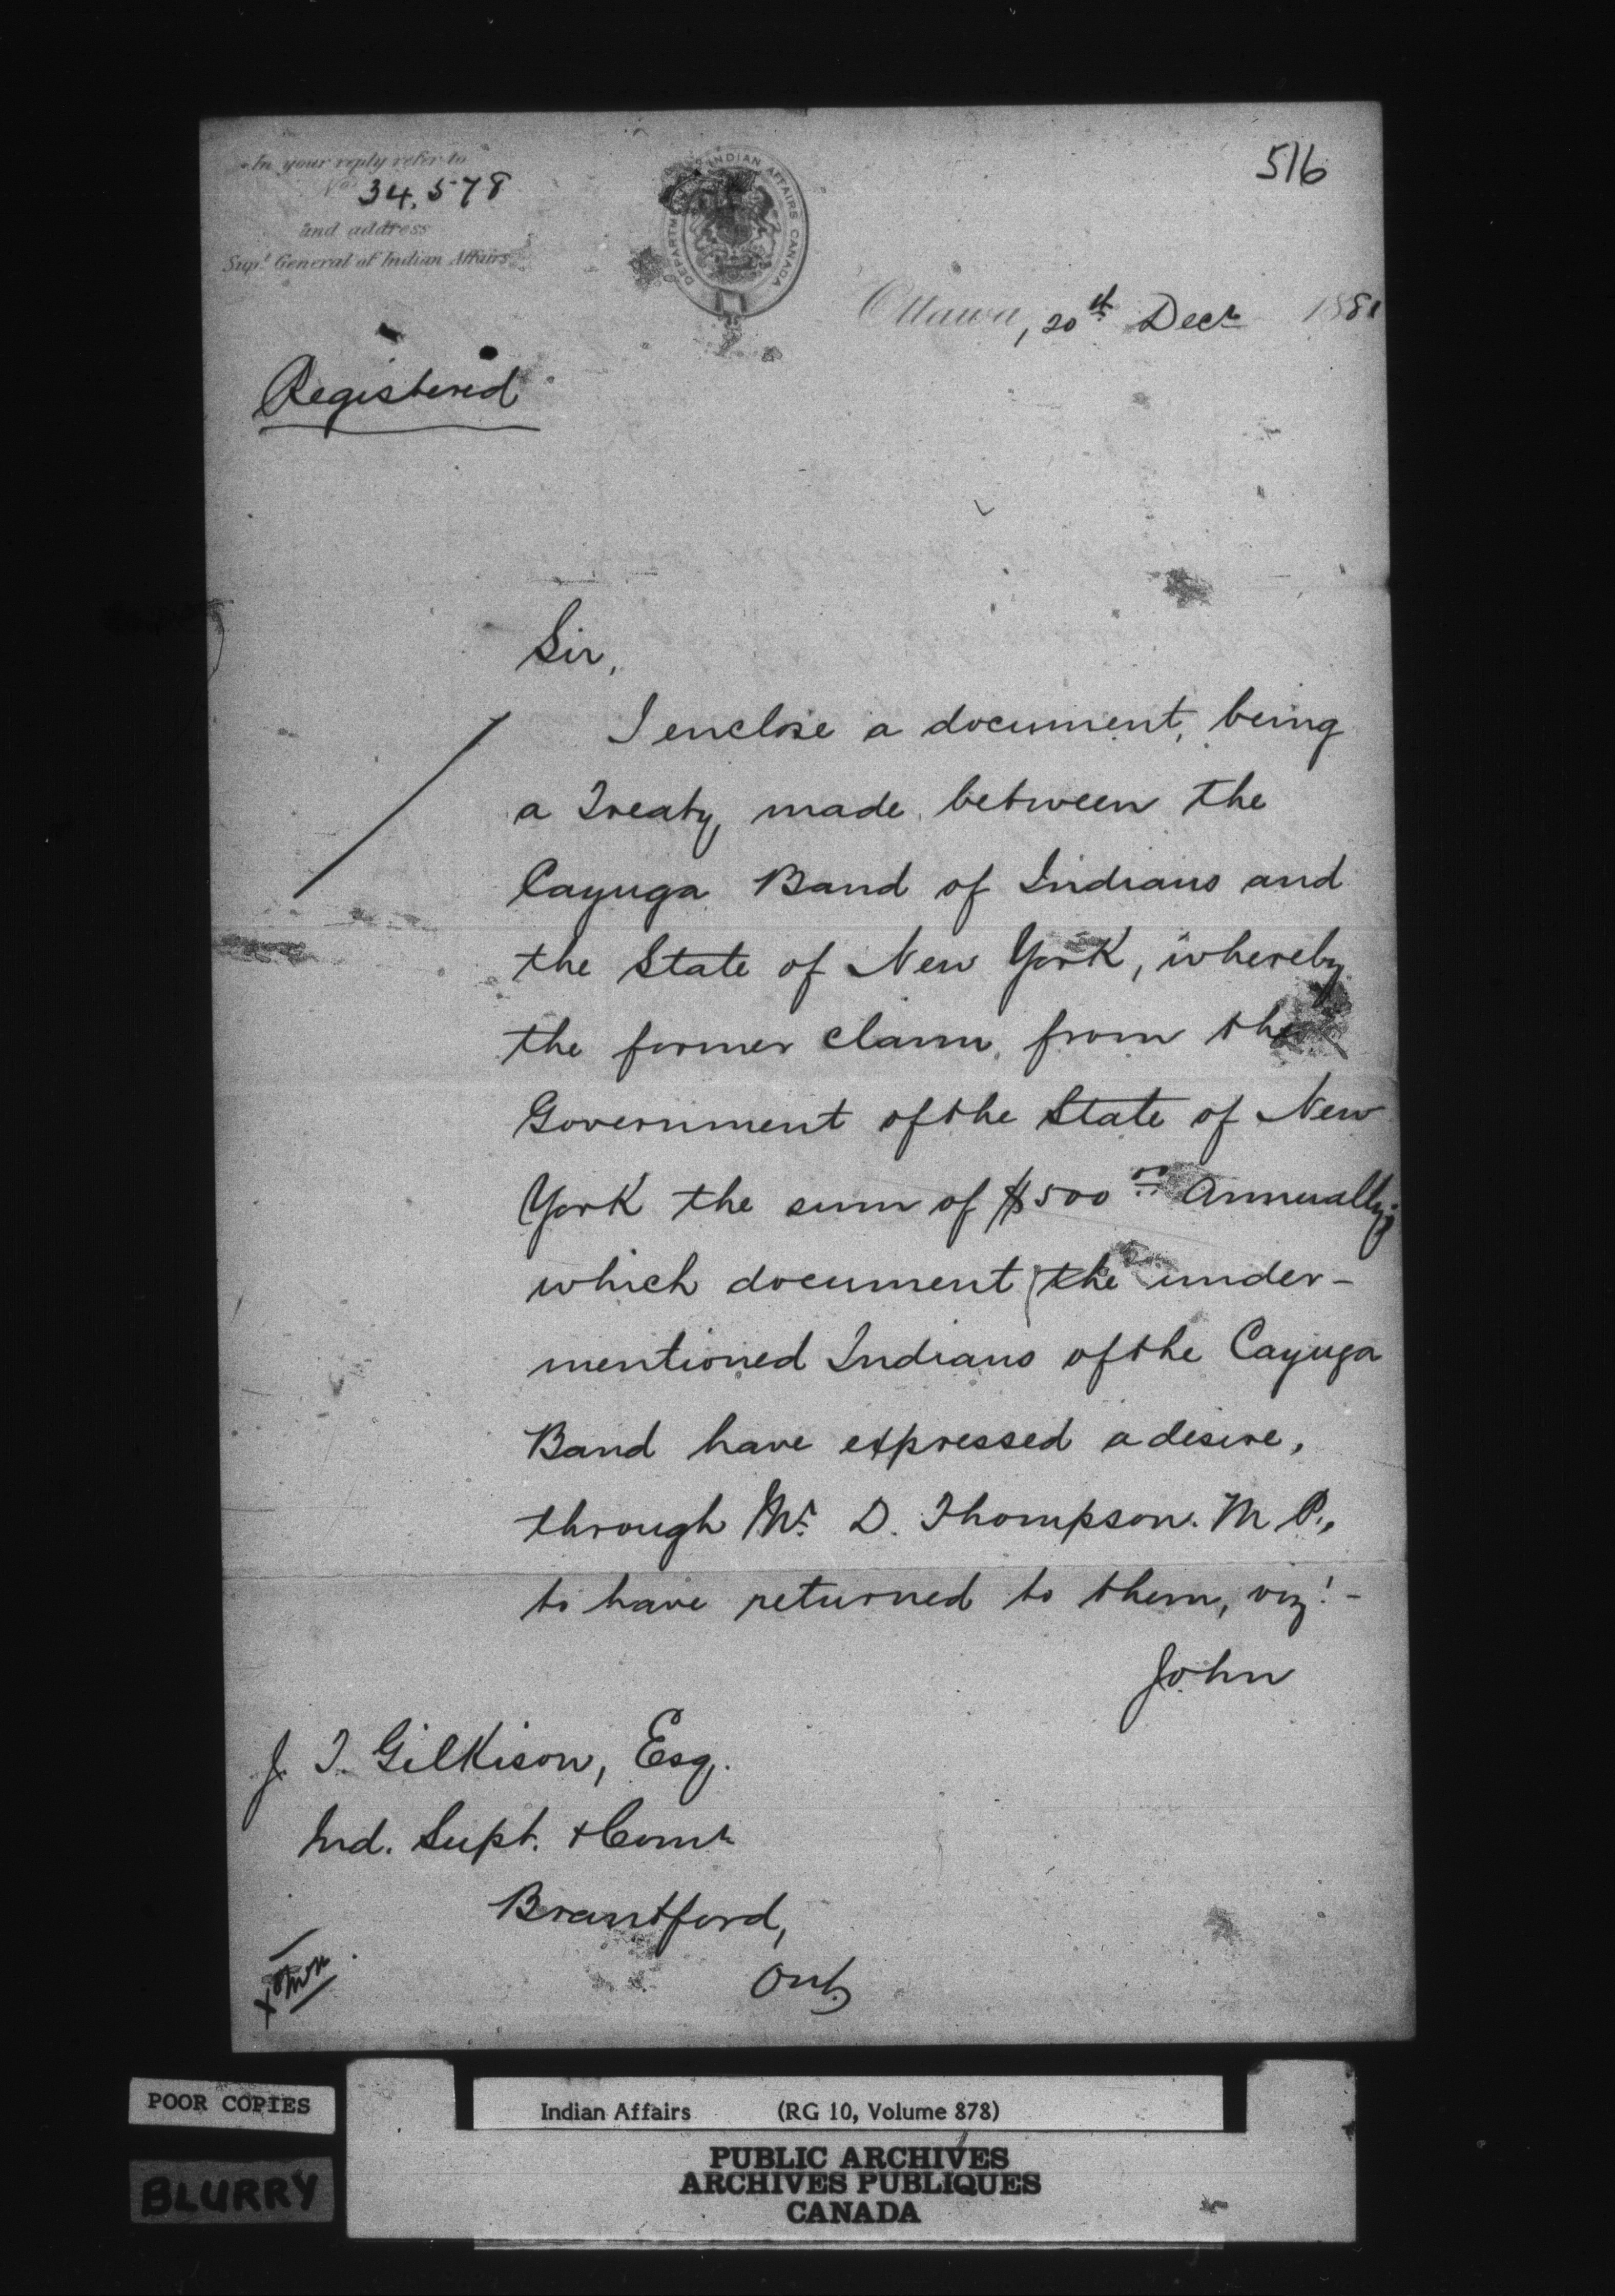 In your reply refer to
No. 34.578
and address
Supt. General of Indian Affairs
DEPARTMENT INDIAN AFFAIRS CANADA
516
Ottawa, 20th Decr 1881
Registered
Sir,
I enclose a document, being
a Treaty, made between the
Cayuga Band of Indians and
the State of New York, whereby
the former claim, from the
Government of the State of New
York the sum of $500.00 Annually;
which document, the under-
mentioned Indians of the Cayuga
Band have expressed a desire,
through Mr. D. Thompson. M.P.,
to have returned to them, viz:-
John
J. T. Gilkison, Esq.
Ind. Supt. & Comr
Brantford,
Ont.
POOR COPIES
BLURRY
Indian Affairs (RG 10, Volume 878)
PUBLIC ARCHIVES
ARCHIVES PUBLIQUES
CANADA